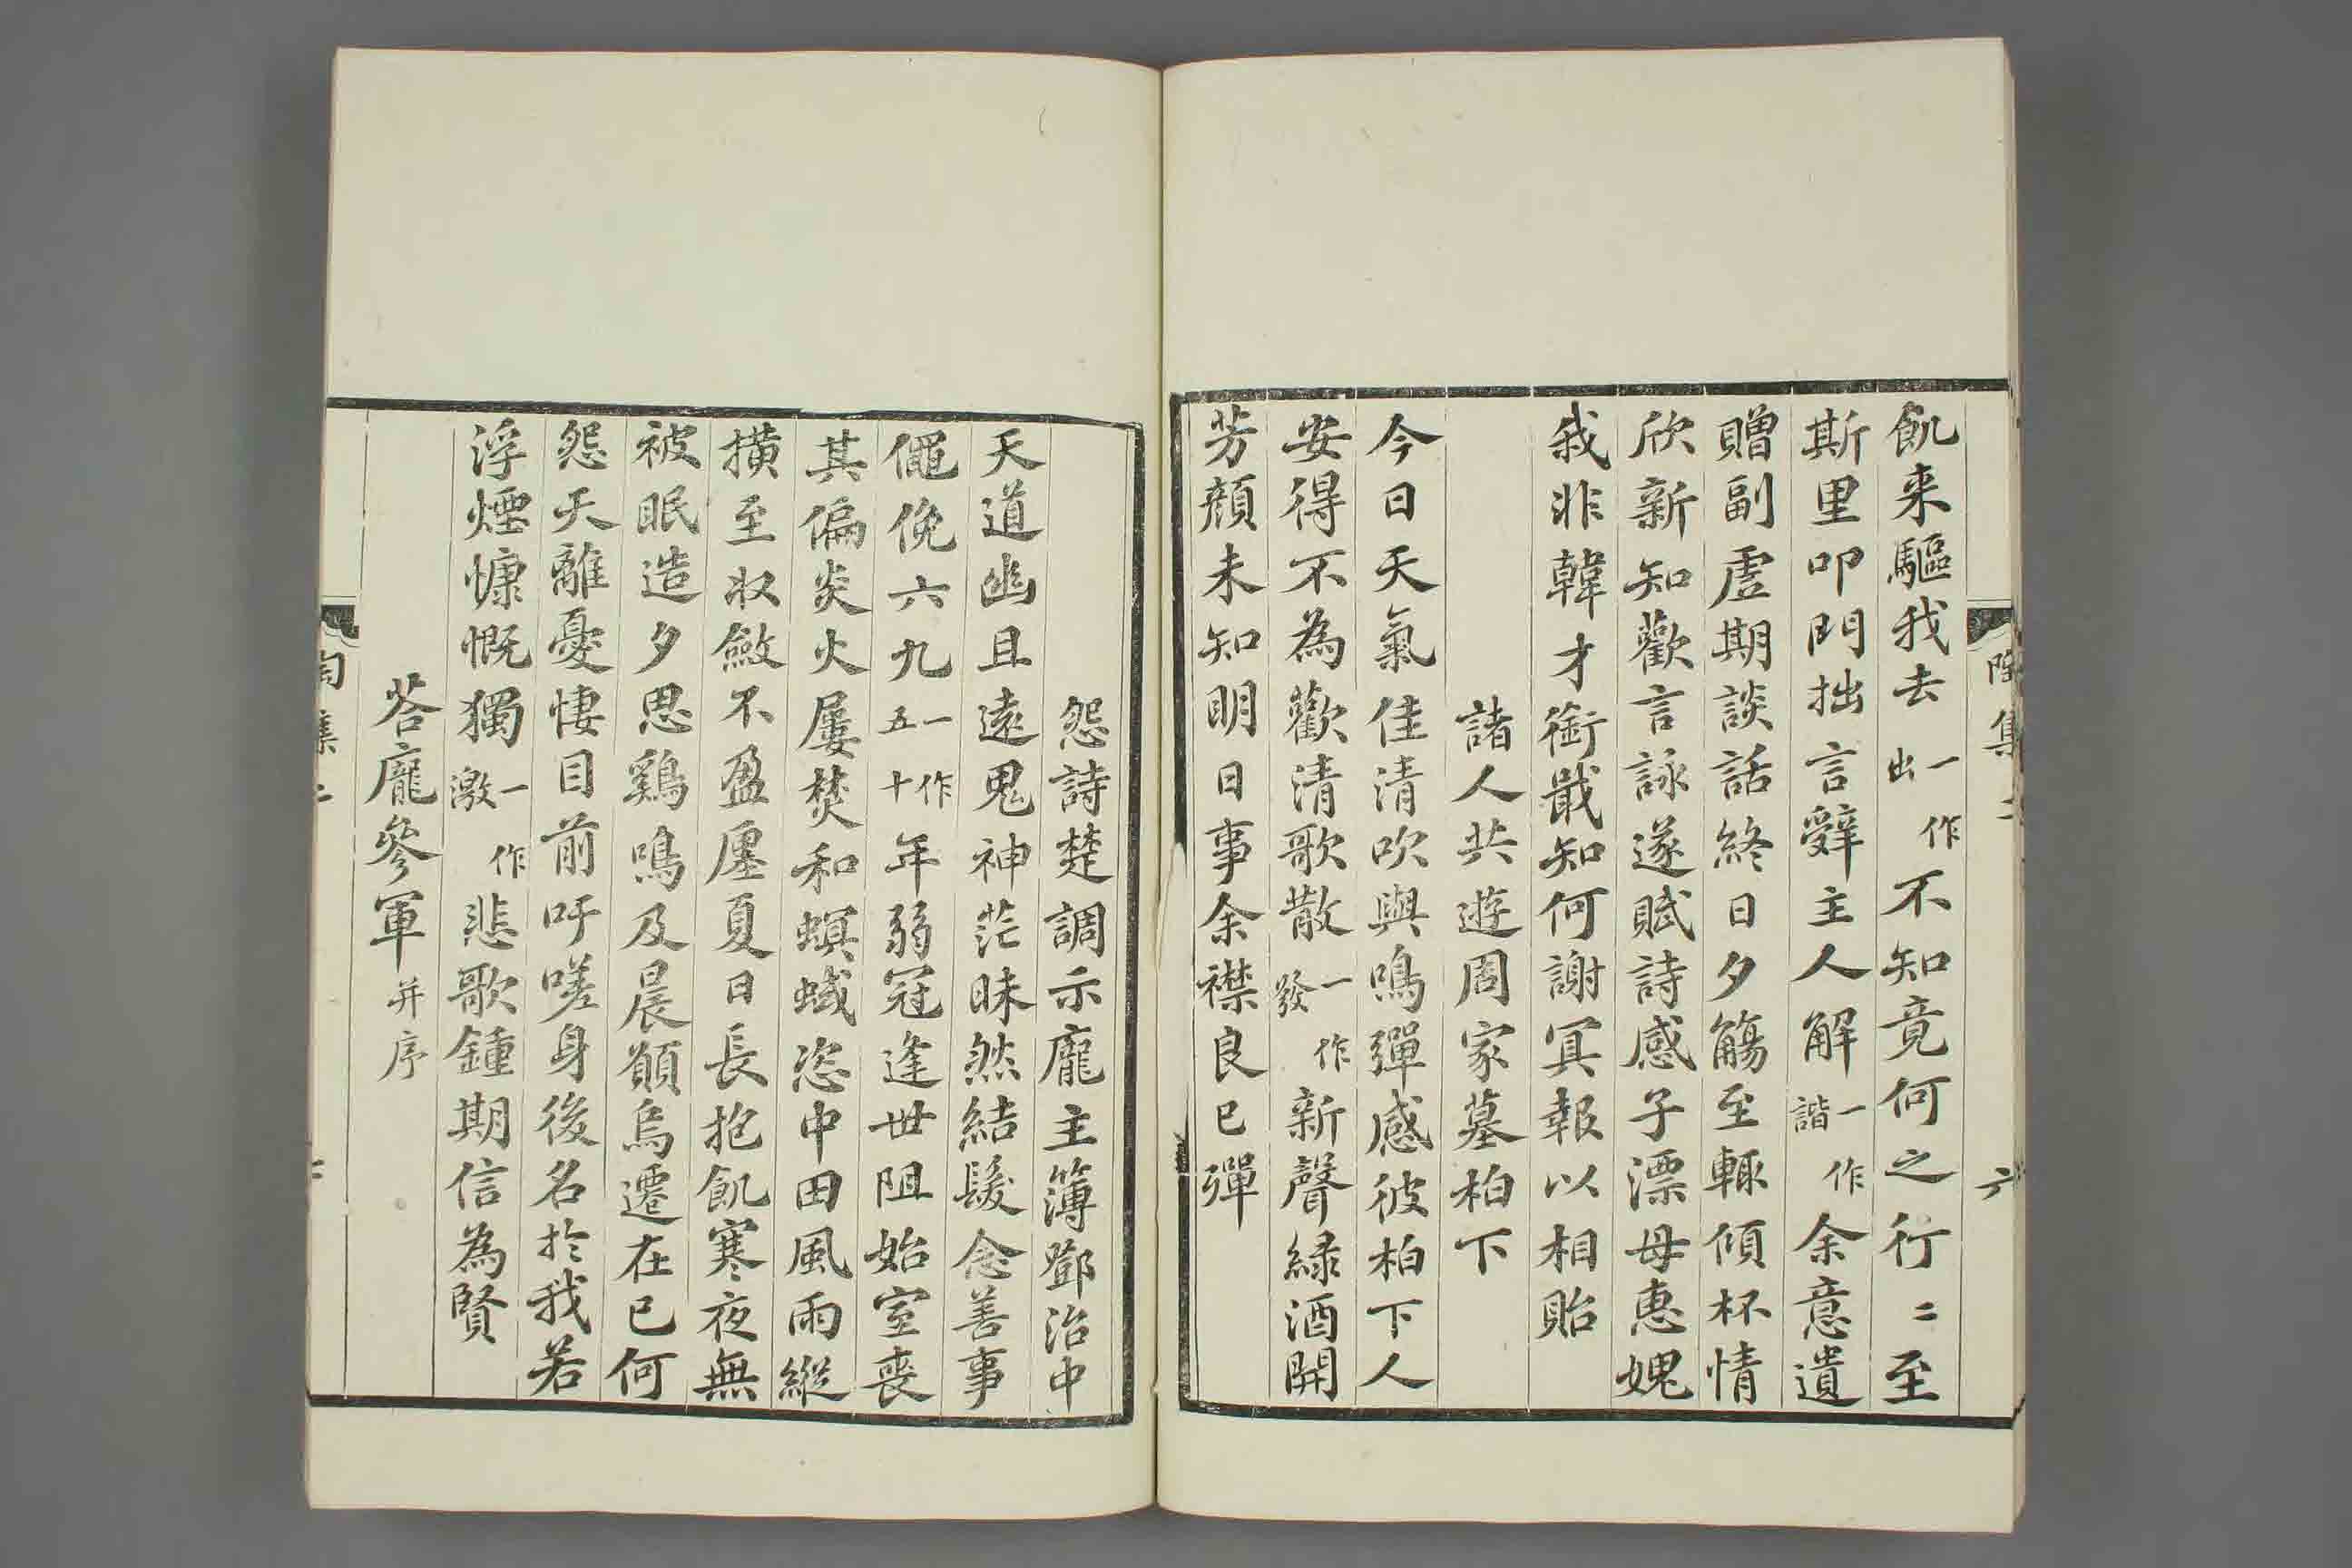 陶集二 六
飢来驅我去一作出不知竟何之行〻至
斯里叩門拙言辭主人解一作諧余意遺
贈副虗期談話終日夕觴至輒傾杯情
欣新知歡言詠遂賦詩感子漂母惠媿
我非韓才銜戢知何謝冥報以相貽
諸人共遊周家墓柏下
今日天氣佳清吹與鳴彈感彼柏下人
安得不為歡清歌散一作發新聲緑酒開
芳顔未知明日事余襟良已彈
怨詩楚調示龐主簿鄧治中
天道幽且遠鬼神茫昧然結髮念善事
僶俛六九一作五十年弱冠逢世阻始室喪
其偏炎火屢焚和螟蜮恣中田風雨縱
橫至收斂不盈廛夏日長抱飢寒夜無
被眠造夕思鷄鳴及晨願烏遷在已何
怨天離憂悽目前吁嗟身後名於我若
浮煙慷慨獨一作激悲歌鍾期信為賢
荅龐參軍并序
陶集二